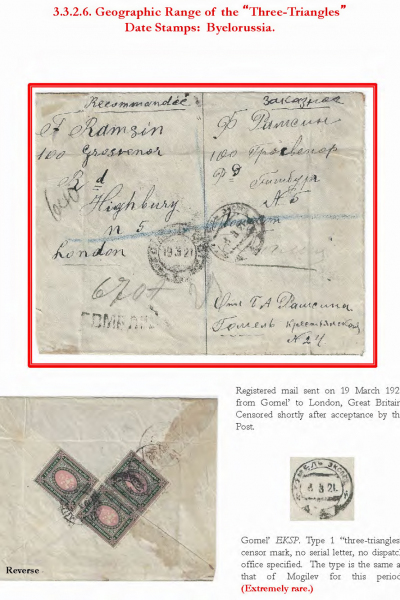 3.3.2.6. Geographic Range of the “Three-Triangles”
Date Stamps: Byelorussia.
Recommandée
Заказное
F Ramzin
100 Grosvenor
Rd
Highbury
N 5
London
Ф Рамсин
100 Гросвенор
РД
Гайбури
N 5
640
19 3 21
6 3 21
6701
ГОМЕЛЬ
Отп. Г А Рамзина
Гомель крестьянская
N 24
Registered mail sent on 19 March 192
from Gomel’ to London, Great Britain
Censored shortly after acceptance by th
Post.
Reverse
6 3 21
Gomel’ EKSP. Type 1 “three-triangles
censor mark, no serial letter, no dispatc
office specified. The type is the same a
that of Mogilev for this period
(Extremely rare.)